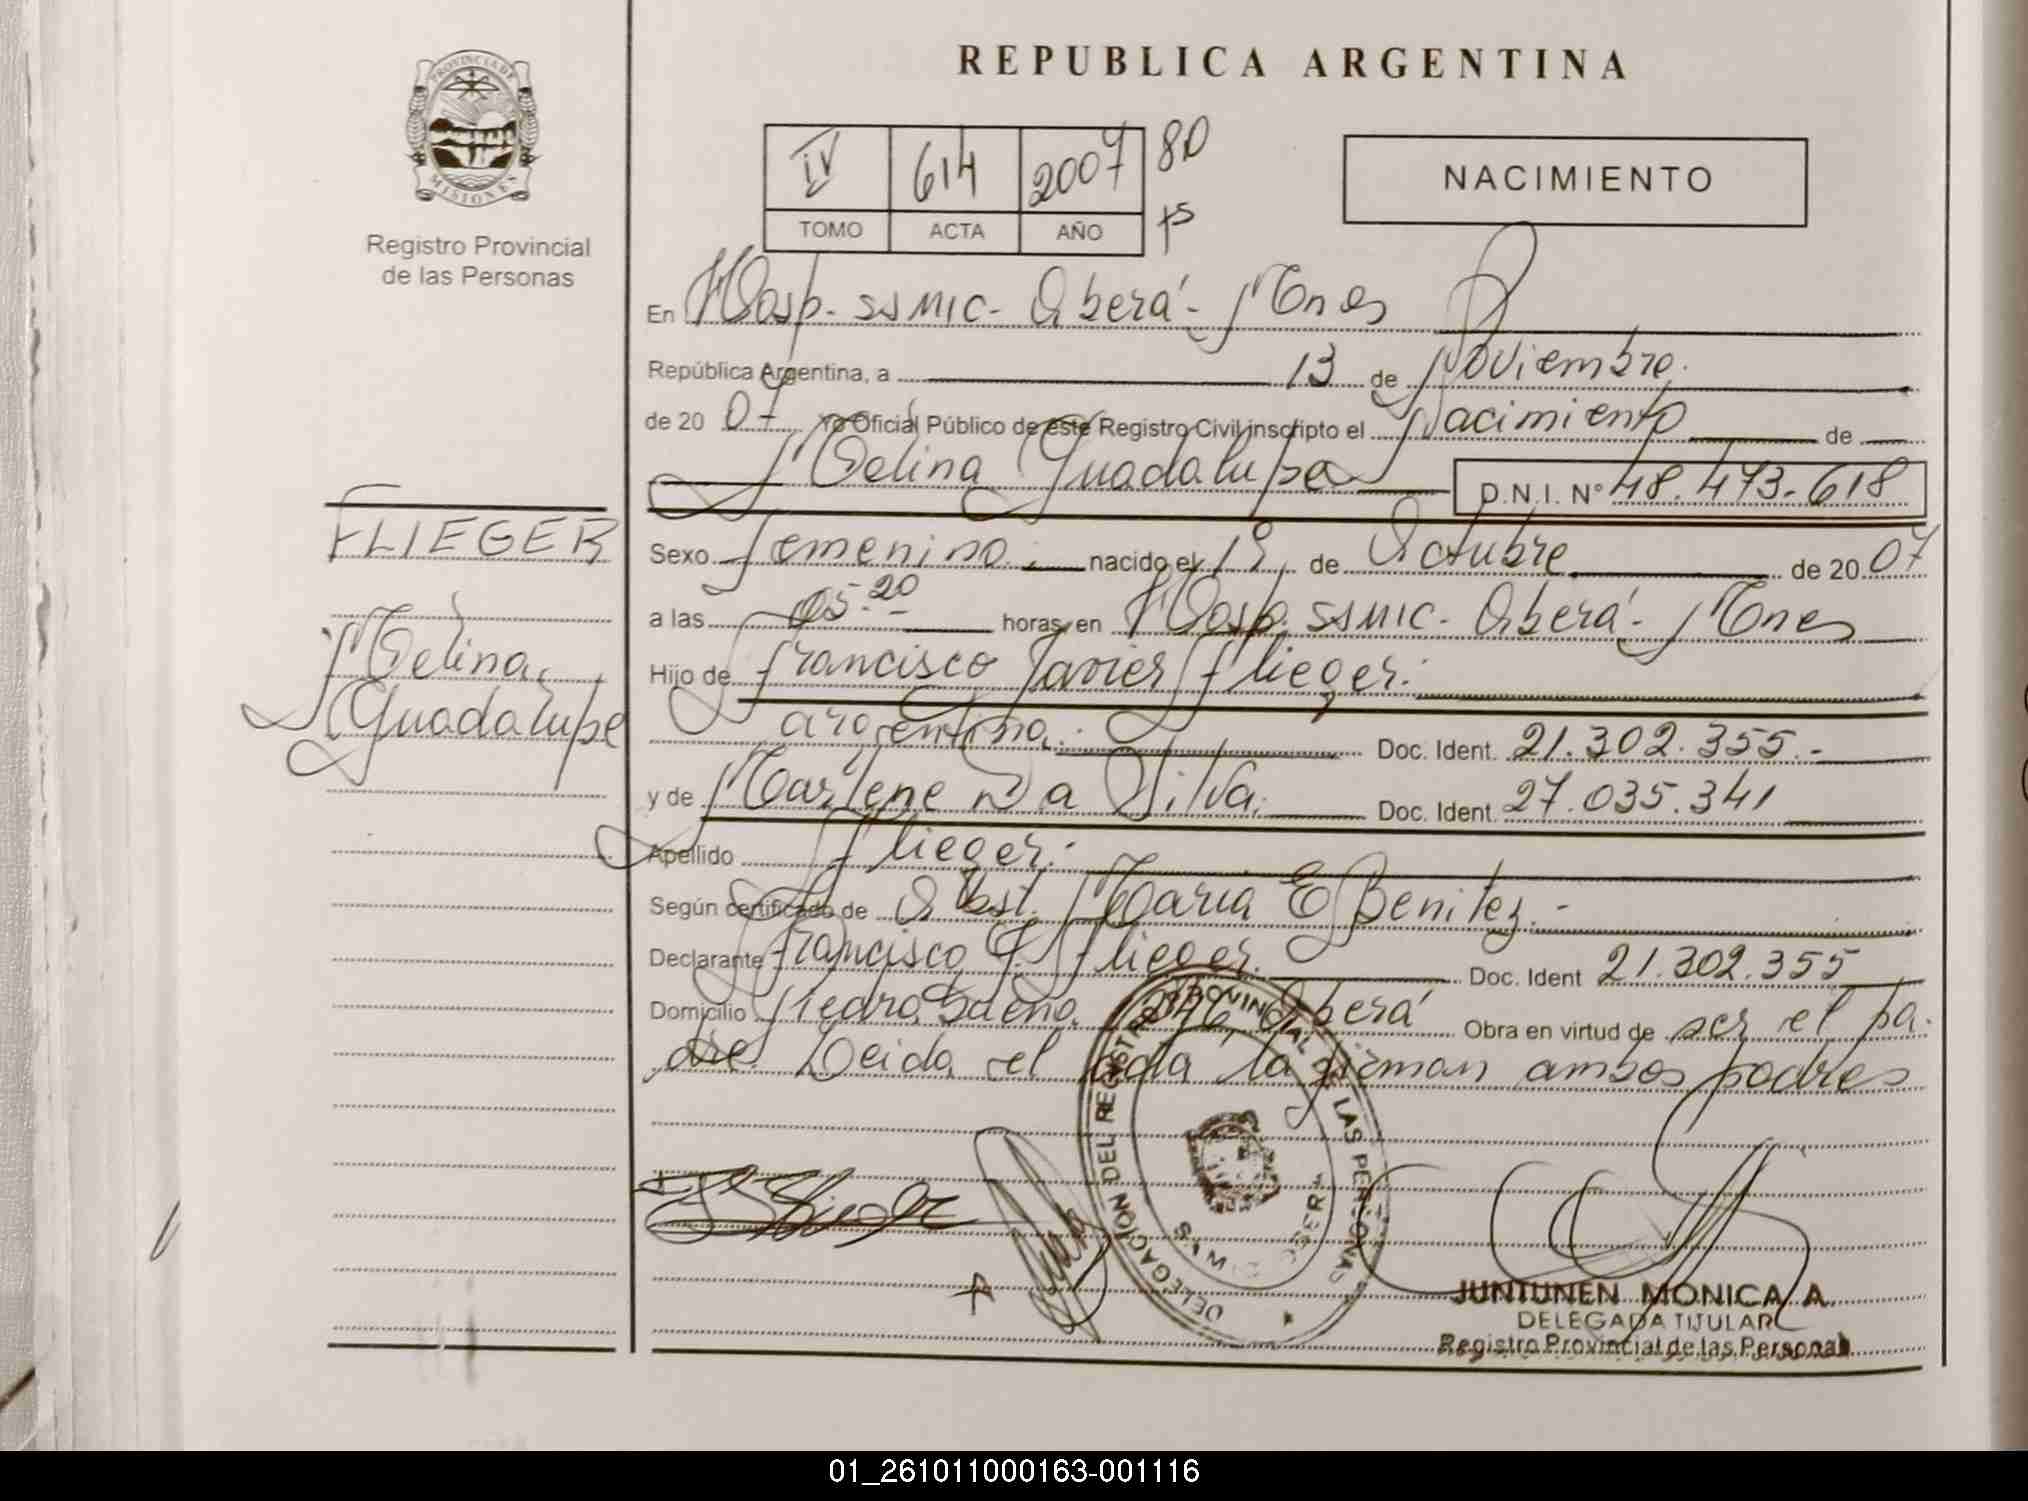 REPUBLICA ARGENTINA
PROVINCIA DE
MISIONES
Registro Provincial
de las Personas
IV 614 2007 8D
TOMO ACTA AÑO
NACIMIENTO
En Hosp. SSMIC - Oberá - Mnes
República Argentina, a 13 de Noviembre.
de 20 07 Yo Oficial Público de este Registro Civil inscripto el Nacimiento de
Melina Guadalupe D.N.I. Nº 48.473.618
FLIEGER
Melina
Guadalupe
Sexo femenino nacido el 19 de Octubre de 20 07
a las 05.20 horas, en Hosp. SSMIC - Oberá - Mnes
Hijo de Francisco Javier Flieger.
argentina. Doc. Ident. 21.302.355.-
y de Marlene Da Silva. Doc. Ident. 27.035.341
Apellido Flieger.-
Según certificado de Obst. Maria E Benitez.-
Declarante Francisco J. Flieger. Doc. Ident 21.302.355
Domicilio Pedro Oberá Obra en virtud de ser el pa-
dre. Leida el acta la firman ambos padres
DELEGACION DEL REGISTRO PROVINCIAL DE LAS PERSONAS
OBERA
JUNTUNEN MONICA A.
DELEGADA TITULAR
Registro Provincial de las Personas
01_261011000163-001116